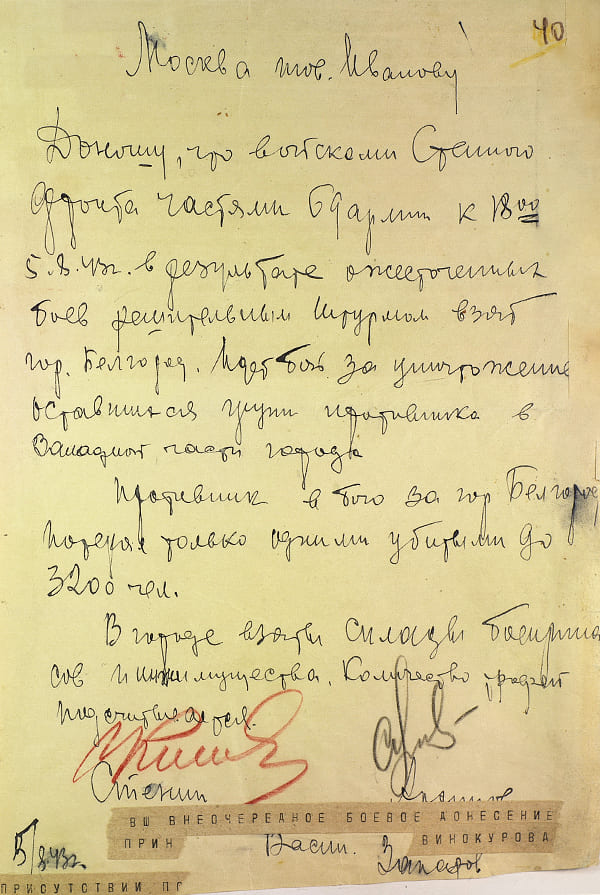 40
Москва тов. Иванову
Доношу, что войсками Степного
фронта частями 69 армии к 18 00
5.8.43г. в результате ожесточенных
боев решительным штурмом взят
гор. Белгород. Идет бой за уничтожение
оставшихся групп противника в
Западной части города
Противник в бою за гор Белгород
потерял только одними убитыми до
3200 чел.
В городе взяты склады боеприпа
сов и инжимущества. Количество трофей
подсчитывается.
Степин
ВШ ВНЕОЧЕРЕДНОЕ БОЕВОЕ ДОНЕСЕНИЕ
ПРИН ВИНОКУРОВА
5/8 43г. Захаров
ПРИСУТСТВИИ ПО